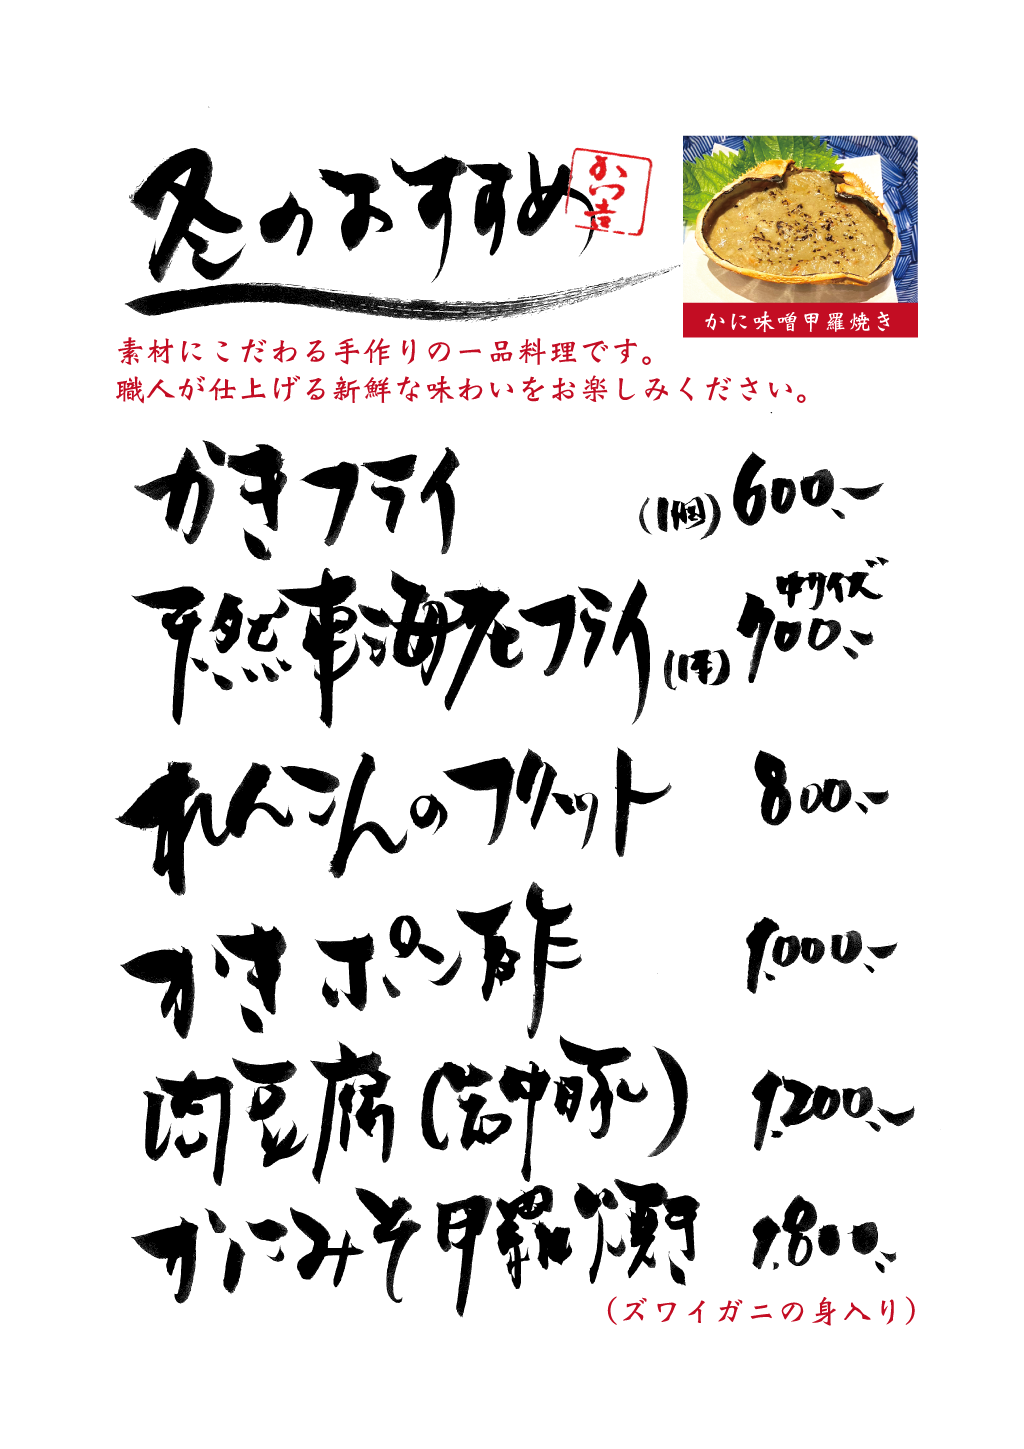 冬のおすすめ
かつ吉
かに味噌甲羅焼き
素材にこだわる手作りの一品料理です。
職人が仕上げる新鮮な味わいをお楽しみください。
かきフライ (1個) 600、-
天然車海老フライ (1本) 中サイズ 700、-
れんこんのフリット 800、-
かきポン酢 1,000、-
肉豆腐(岩中豚) 1,200、-
かにみそ甲羅焼き 1,800、-
(ズワイガニの身入り)